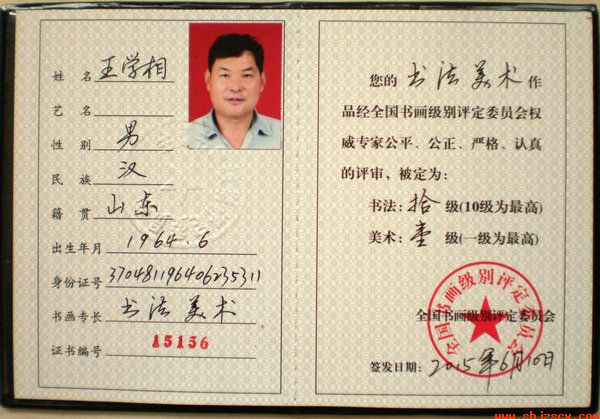 姓 名 王学相
艺 名
性 别 男
民 族 汉
籍 贯 山东
出生年月 1964.6
身份证号 370481196406235311
书画专长 书法美术
证书编号 A5156
您的书法美术作
品经全国书画级别评定委员会权
威专家公平、公正、严格、认真
的评审，被定为：
书法：拾级(10级为最高)
美术：壹级(一级为最高)
全国书画级别评定委员会
全国书画级别评定委员会
签发日期：2015年6月10日
www.sbjzscx.com